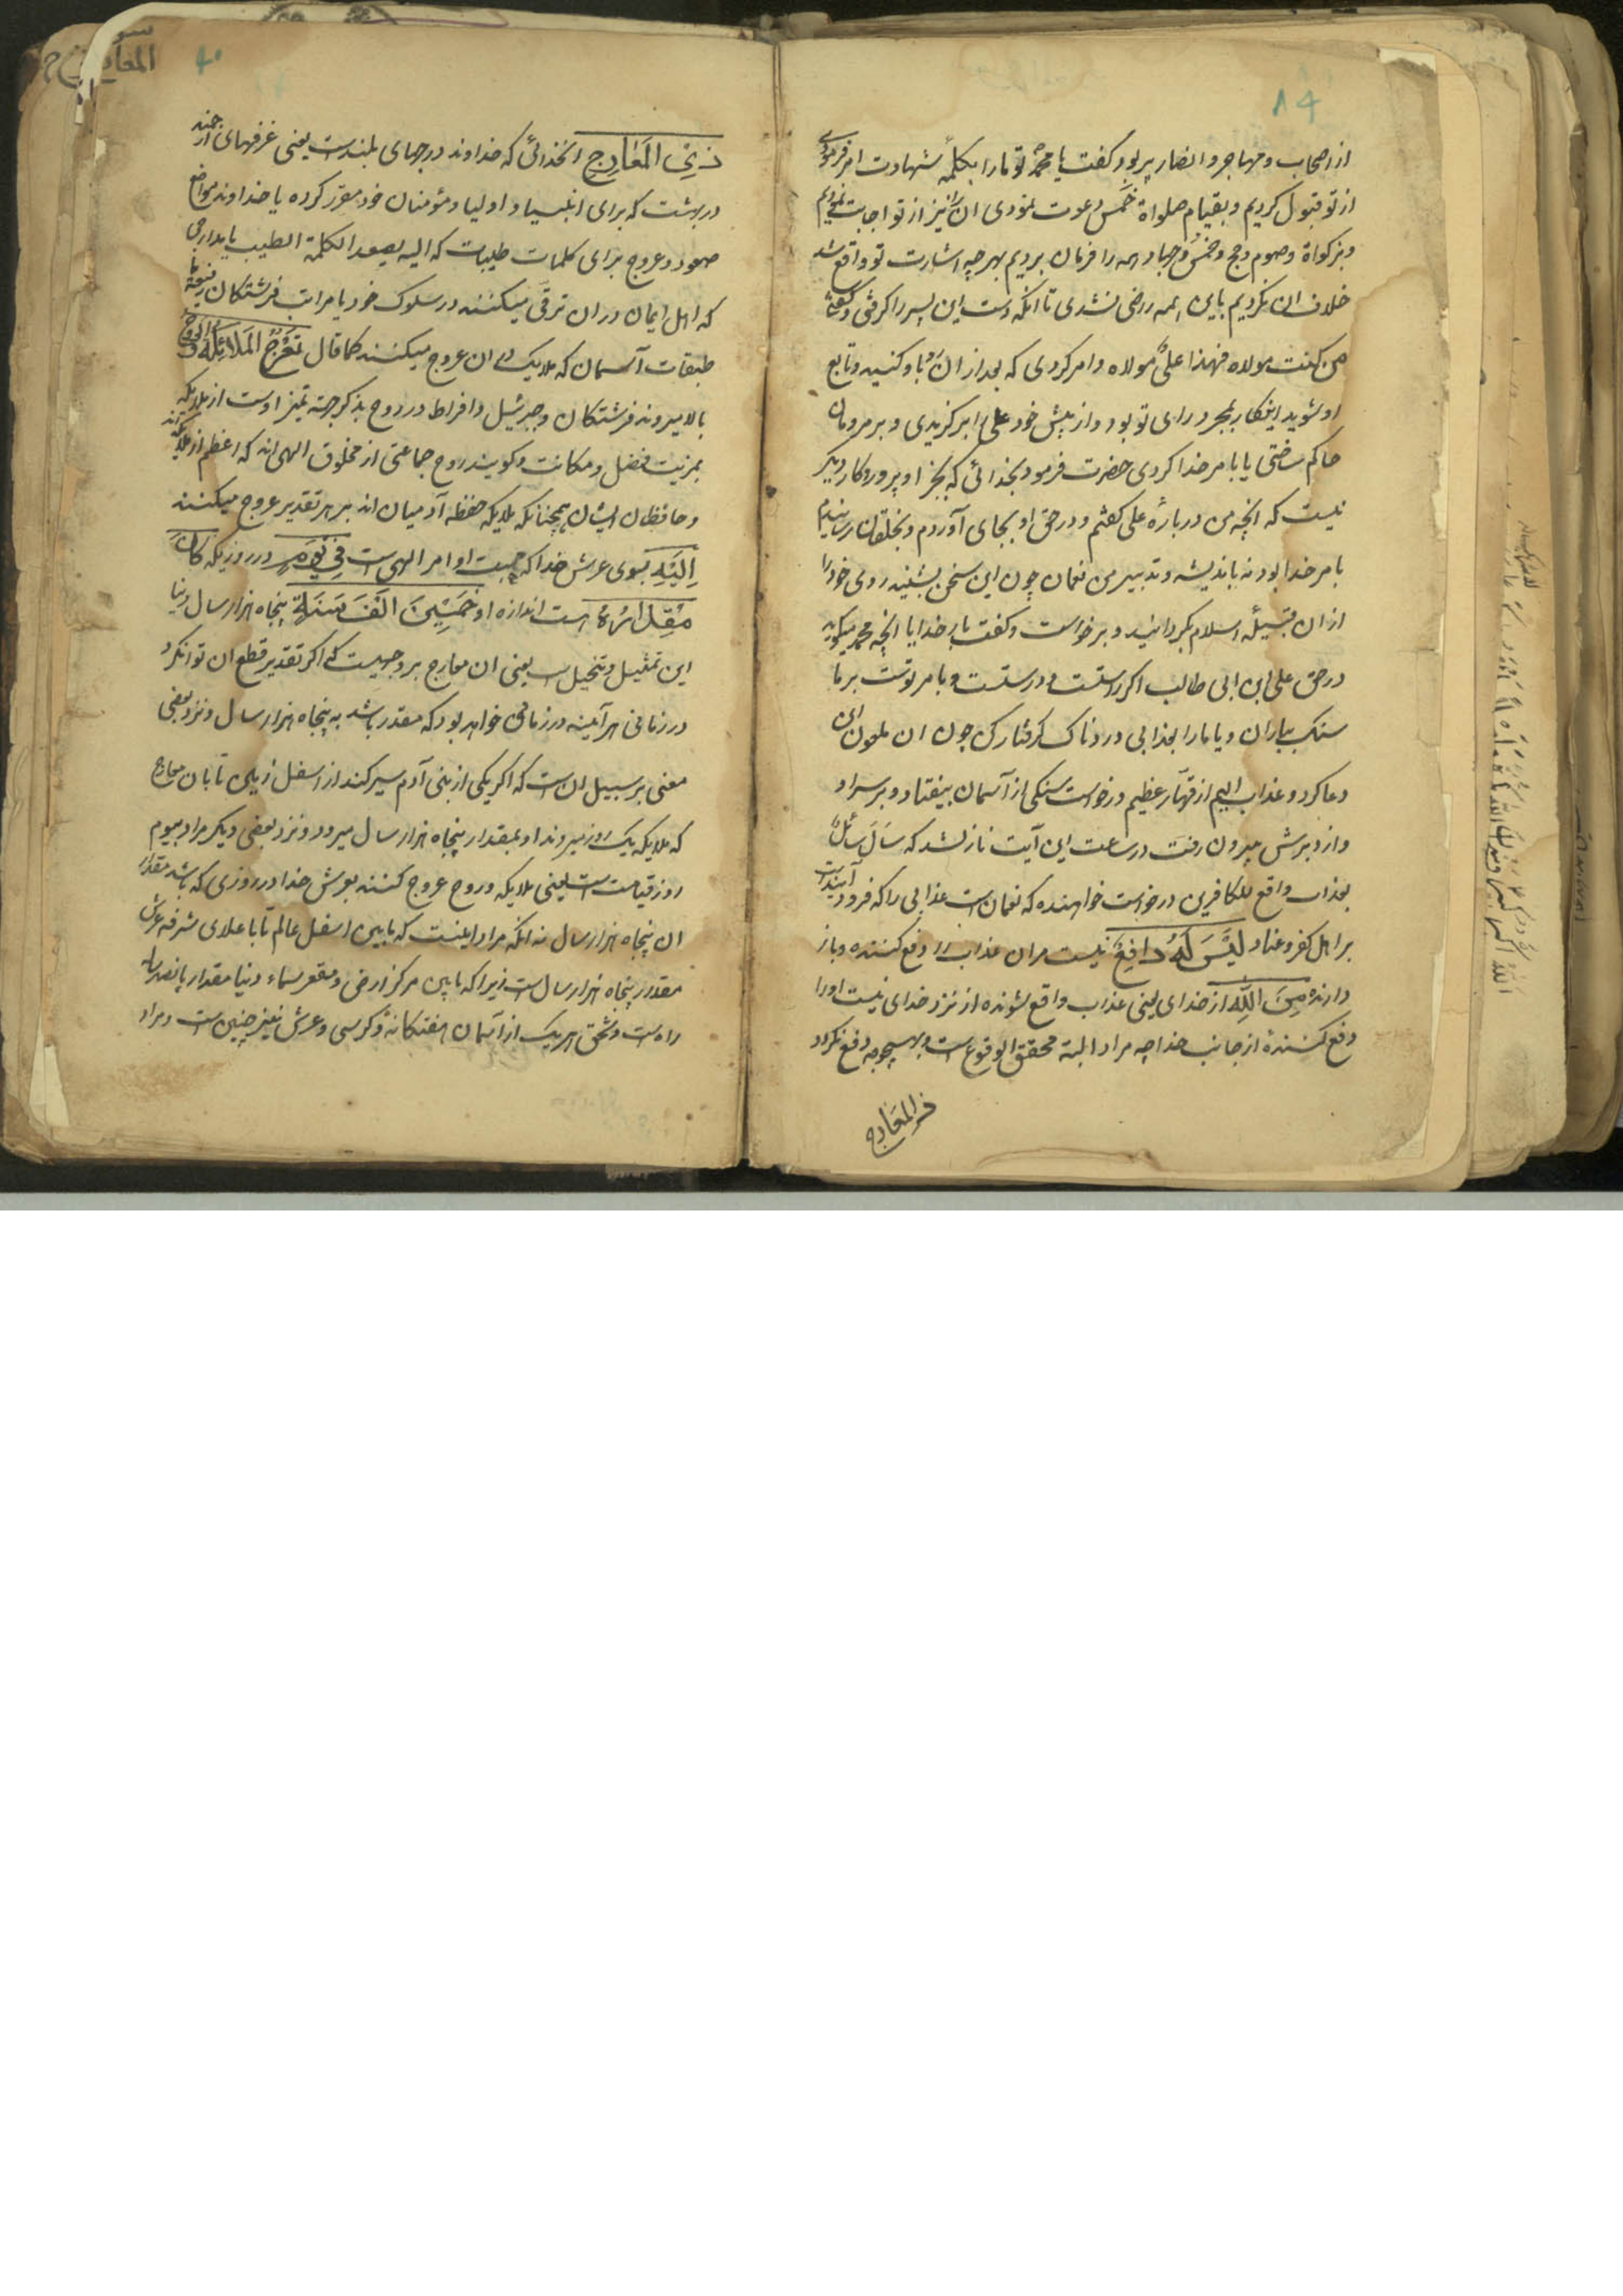 ۸۴
از اصحاب و مهاجر و انصار پر بود کفت یا محمد تو ما را بکلمهٔ شهادت امر فرمودی
از تو قبول کردیم و بقیام صلواة خمس دعوت نمودی ان را نیز از تو اجابت نمودیم
و بزکواة و صوم و حج و خمس و جهاد همه را فرمان بردیم بهر چه اشارت تو واقع شد
خلاف ان نکردیم باین همه راضی نشدی تا انکه دست این پسر را کرفتی و کفتی
من کنت مولاه فهذا علی مولاه و امر کردی که بعد از ان با و کنید و تابع
او شوید اینکار بمجرد رای تو بود و از پیش خود علی را برکزیدی و بر مردمان
حاکم ساختی یا بامر خدا کردی حضرت فرمود بخدائی که بجز او پروردکار دیکر
نیست که انچه من دربارهٔ علی کفتم و در حق او بجای آوردم و بخلقان رسانیدم
بامر خدا بود نه باندیشه و تدبیر من نعمان چون این سخن بشنید روی خود را
از ان قبیلهٔ اسلام بکردانید و برخواست و کفت بار خدایا انچه محمد میکوید
در حق علی ابن ابی طالب اکر راستست و درستست و بامر توست بر ما
سنک بباران و یا ما را بعذابی دردناک کرفتار کن چون ان ملعون این
دعا کرد و عذاب الیم از قهار عظیم درخواست سنکی از آسمان بیفتاد و بر سر او
و از دبرش بیرون رفت در ساعت این آیت نازل شد که سَاَلَ سَائِلٌ
بعذاب واقع للکافرین درخواست خواهنده که نعمان است عذابی را که فرود آینده است
بر اهل کفر و عناد لَیْسَ لَهُ دَافِعٌ نیست مران عذاب را دفع کننده و باز
دارنده مِنَ اللّٰهِ از خدای یعنی عذاب واقع شونده از نزد خدای نیست او را
دفع کنندهٔ از جانب خدا چه مراد البته محقق الوقوع است و بهیچوجه دفع نکردد
ذی المعارج
سو
المعارج
۴۰
ذِیْ المَعَارِجِ انخدائی که خداوند درجهای بلندست یعنی غرفهای ارجمند
در بهشت که برای انبیا و اولیا و مؤمنان خود مقرر کرده یا خداوند مواضع
صعود و عروج برای کلمات طیبات که الیه یصعد الکلمة الطیب یا مدارجی
که اهل ایمان در ان ترقی میکنند در سلوک خود یا مراتب فرشتکان رفیعه یا
طبقات آسمان که ملایک در ان عروج میکنند کما قال تَعْرُجُ المَلَائِکَةُ وَ الرُّوحُ
بالا میروند فرشتکان و جبرئیل و افراط در روح بذکر جهة تمیز اوست از ملایکه
بمزیت فضل و مکانت و کویند روح جماعتی از مخلوق الهی اند که اعظم از ملایکه اند
و حافظان ایشان همچنانکه ملایکه حفظه آدمیان اند بر هر تقدیر عروج میکنند
اِلَیْهِ بسوی عرش خدا که مهبت اوامر الهی است فِیْ یَوْمٍ در روزیکه کَانَ
مِقْدَارُهُ است اندازه او خَمْسِیْنَ اَلْفَ سَنَةٍ پنجاه هزار سال دنیا
این تمثیل و تخییل است یعنی ان معارج بروجهیست که اکر تقدیر قطع ان توان کرد
در زمانی هرآینه در زمانی خواهد بود که مقدر باشد به پنجاه هزار سال و نزد بعضی
معنی بر سبیل ان است که اکر یکی از بنی آدم سیر کند از اسفل زمین تا بان معارج
که ملایکه یک روز میروند او بمقدار پنجاه هزار سال میرود و نزد بعضی دیکر مراد بیوم
روز قیامت است یعنی ملایکه و روح عروج کنند بعرش خدا در روزی که باشد مقدار
ان پنجاه هزار سال نه انکه مراد اینست که مابین اسفل عالم تا باعلای شرفه عرش
مقدر پنجاه هزار سال است زیرا که مابین مرکز ارض و مقعر سماء دنیا مقدار پانصد ساله
راه است و ثخن هر یک از آسمان هفتکانه و کرسی و عرش نیز چنین است و مراد